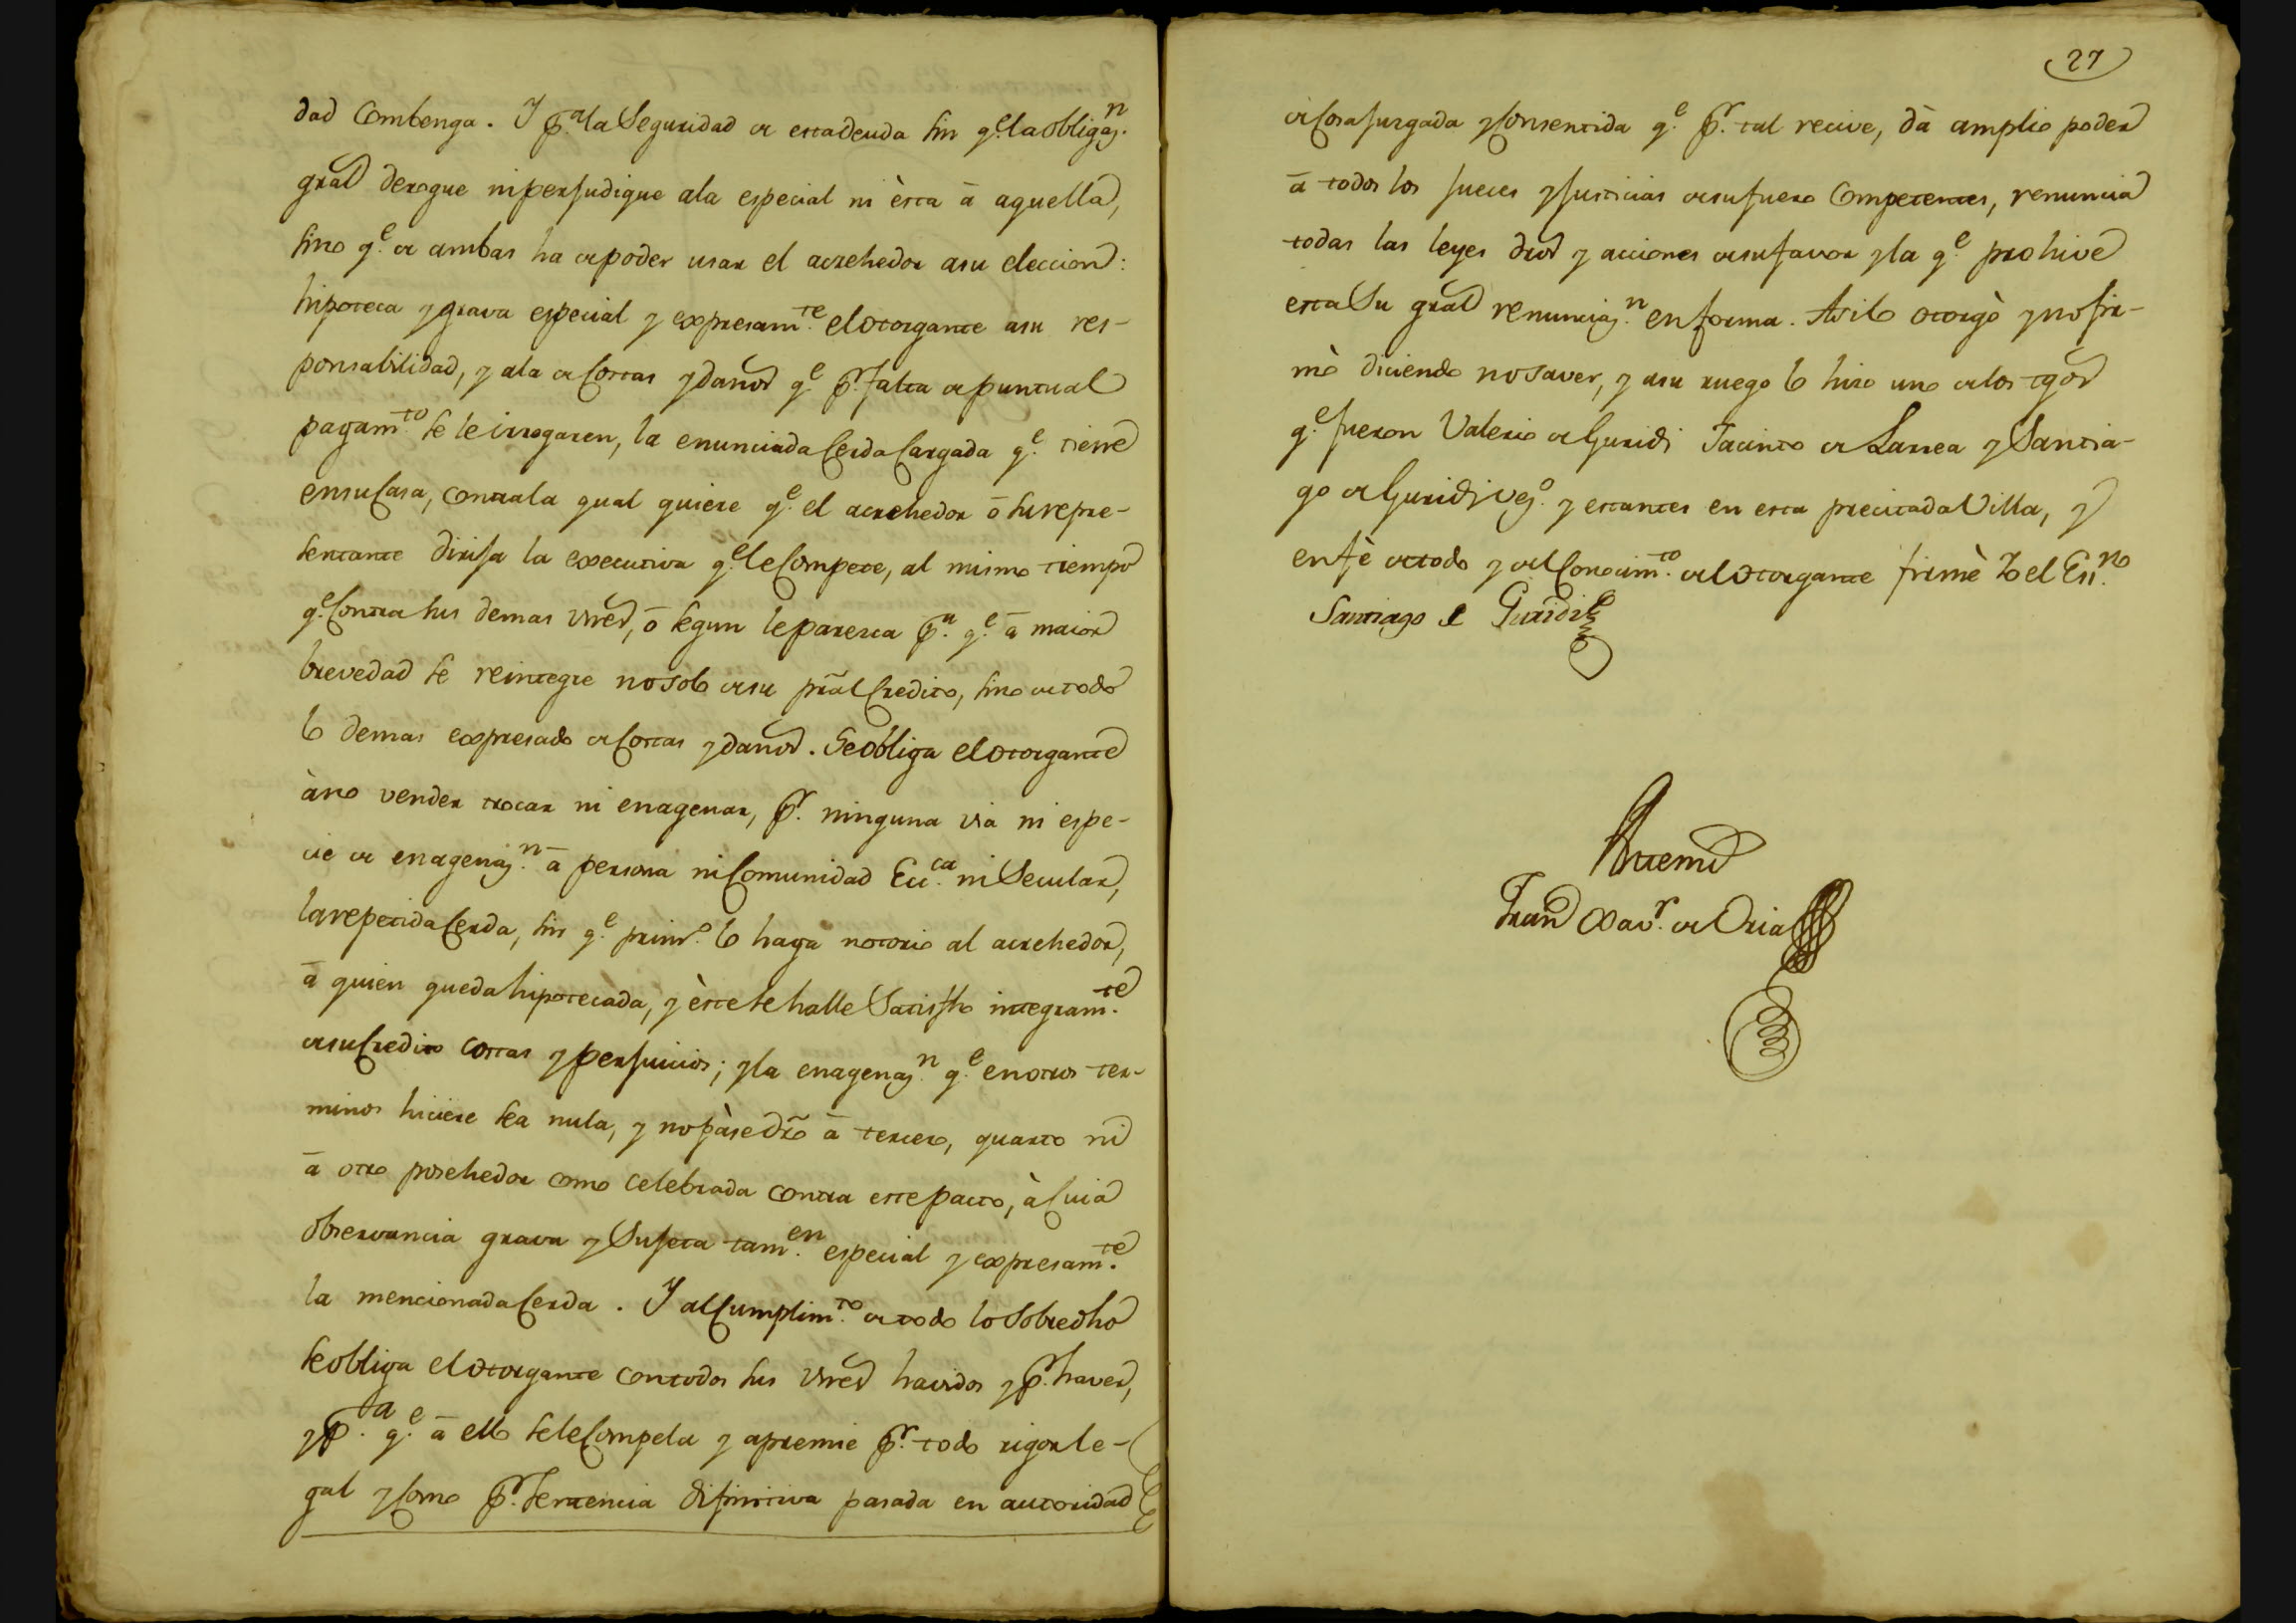 dad Combenga. Y p.ª la Seguridad de esta deuda sin q.e la obligaz.n
gral derogue ni perjudique ala especial ni èsta ā aquella,
sino q.e de ambas ha de poder usar el acrehedor asu eleccion:
hipoteca y grava especial y expresam.te el otorgante asu res-
ponsabilidad, y ala de Costas y daños q.e p.r falta de puntual
pagam.to se le irrogaren, la enunciada Cerda Cargada q.e tiene
en su Casa, contra la qual quiere q.e el acrehedor ō su repre-
sentante dirija la executiva q.e le Compete, al mismo tiempo
q.e Contra sus demas vnes, ō segun le paresca p.a q.e ā maior
brevedad se reintegre no solo de su pral Credito, sino de todo
lo demas expresado de Costas y daños. Se obliga el otorgante
à no vender trocar ni enagenar, p.r ninguna via ni espe-
cie de enagenaz.n ā persona ni Comunidad Ecc.ca ni Secular,
la repetida Cerda, sin q.e primº. lo haga notorio al acrehedor,
ā quien queda hipotecada, y èste se halle Satisfho integram.te
de su Credito costas y perjuicios; y la enagenaz.n q.e en otros ter-
minos hiciere sea nula, y no pàse dr̃o ā tercero, quarto ni
ā otro posehedor como celebrada contra este pacto, à Cuia
observancia grava y Sujeta tam.en especial y expresam.te
la mencionada Cerda. Y al Cumplim.to de todo lo Sobredho
se obliga el otorgante con todos sus vnes havidos y p.r haver,
y p.ra q.e ā ello se le Compela y apremie p.r todo rigor le-
gal y Como p.r Sentencia difinitiva pasada en autoridad
27
de Cosa juzgada y Consentida q.e p.r tal recive, dà amplio poder
ā todos los jueces y justicias de su fuero Competentes, renuncia
todas las leyes dros y acciones de su favor y la q.e prohive
esta Su gral renunciaz.n en forma. Asilo otorgò y no fir-
mò diciendo no saver, y asu ruego lo hizo uno de los tgos
q.e fueron Valerio de Guridi Jacinto de Larrea y Santia-
go de Guridi vez.º y estantes en esta precitada Villa, y
en fè de todo y del Conocim.to del otorgante firmè Yo el Ess.no
Santiago de Guridi
Antemi
Fran.co Xav.r de Oria